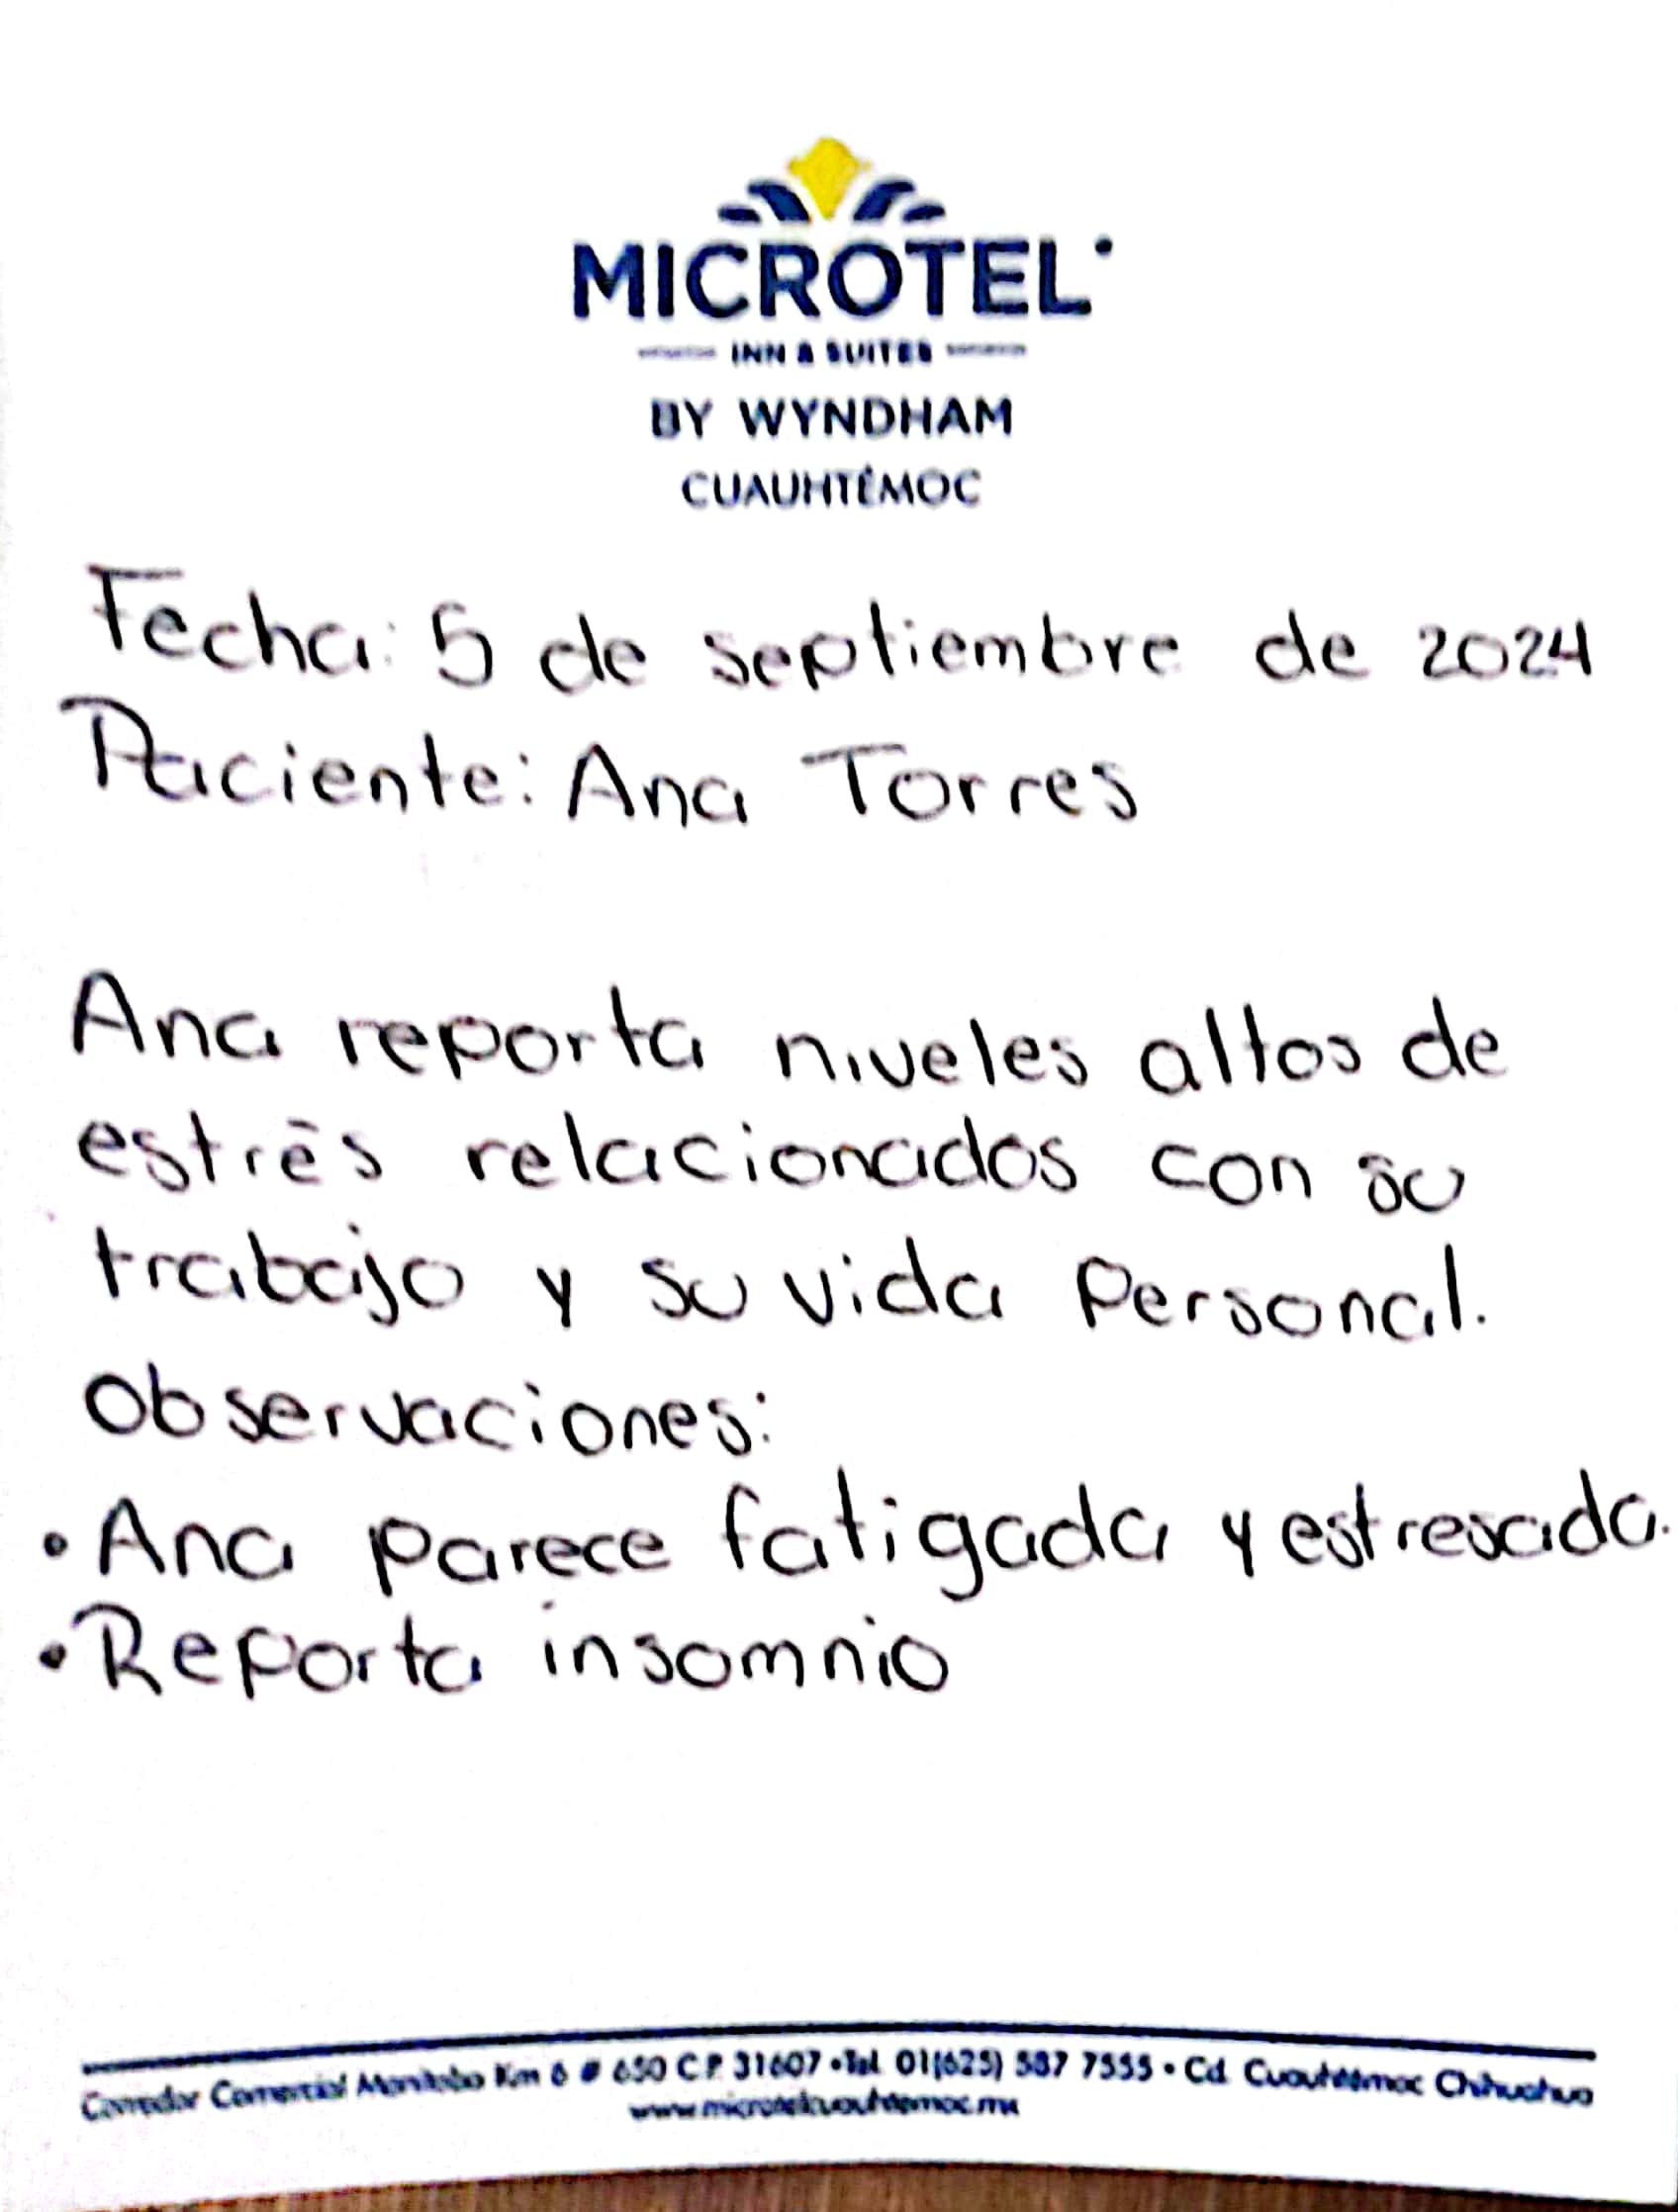 MICROTEL
INN & SUITES
BY WYNDHAM
CUAUHTÉMOC
Fecha: 5 de septiembre de 2024
Paciente: Ana Torres
Ana reporta niveles altos de
estrés relacionados con su
trabajo y su vida Personal.
Observaciones:
• Ana parece fatigada y estresada.
• Reporta insomnio
Corredor Comercial Manitoba Km 6 # 650 C.P. 31607 • Tel. 01(625) 587 7555 • Cd. Cuauhtémoc Chihuahua
www.microtelcuauhtemoc.mx